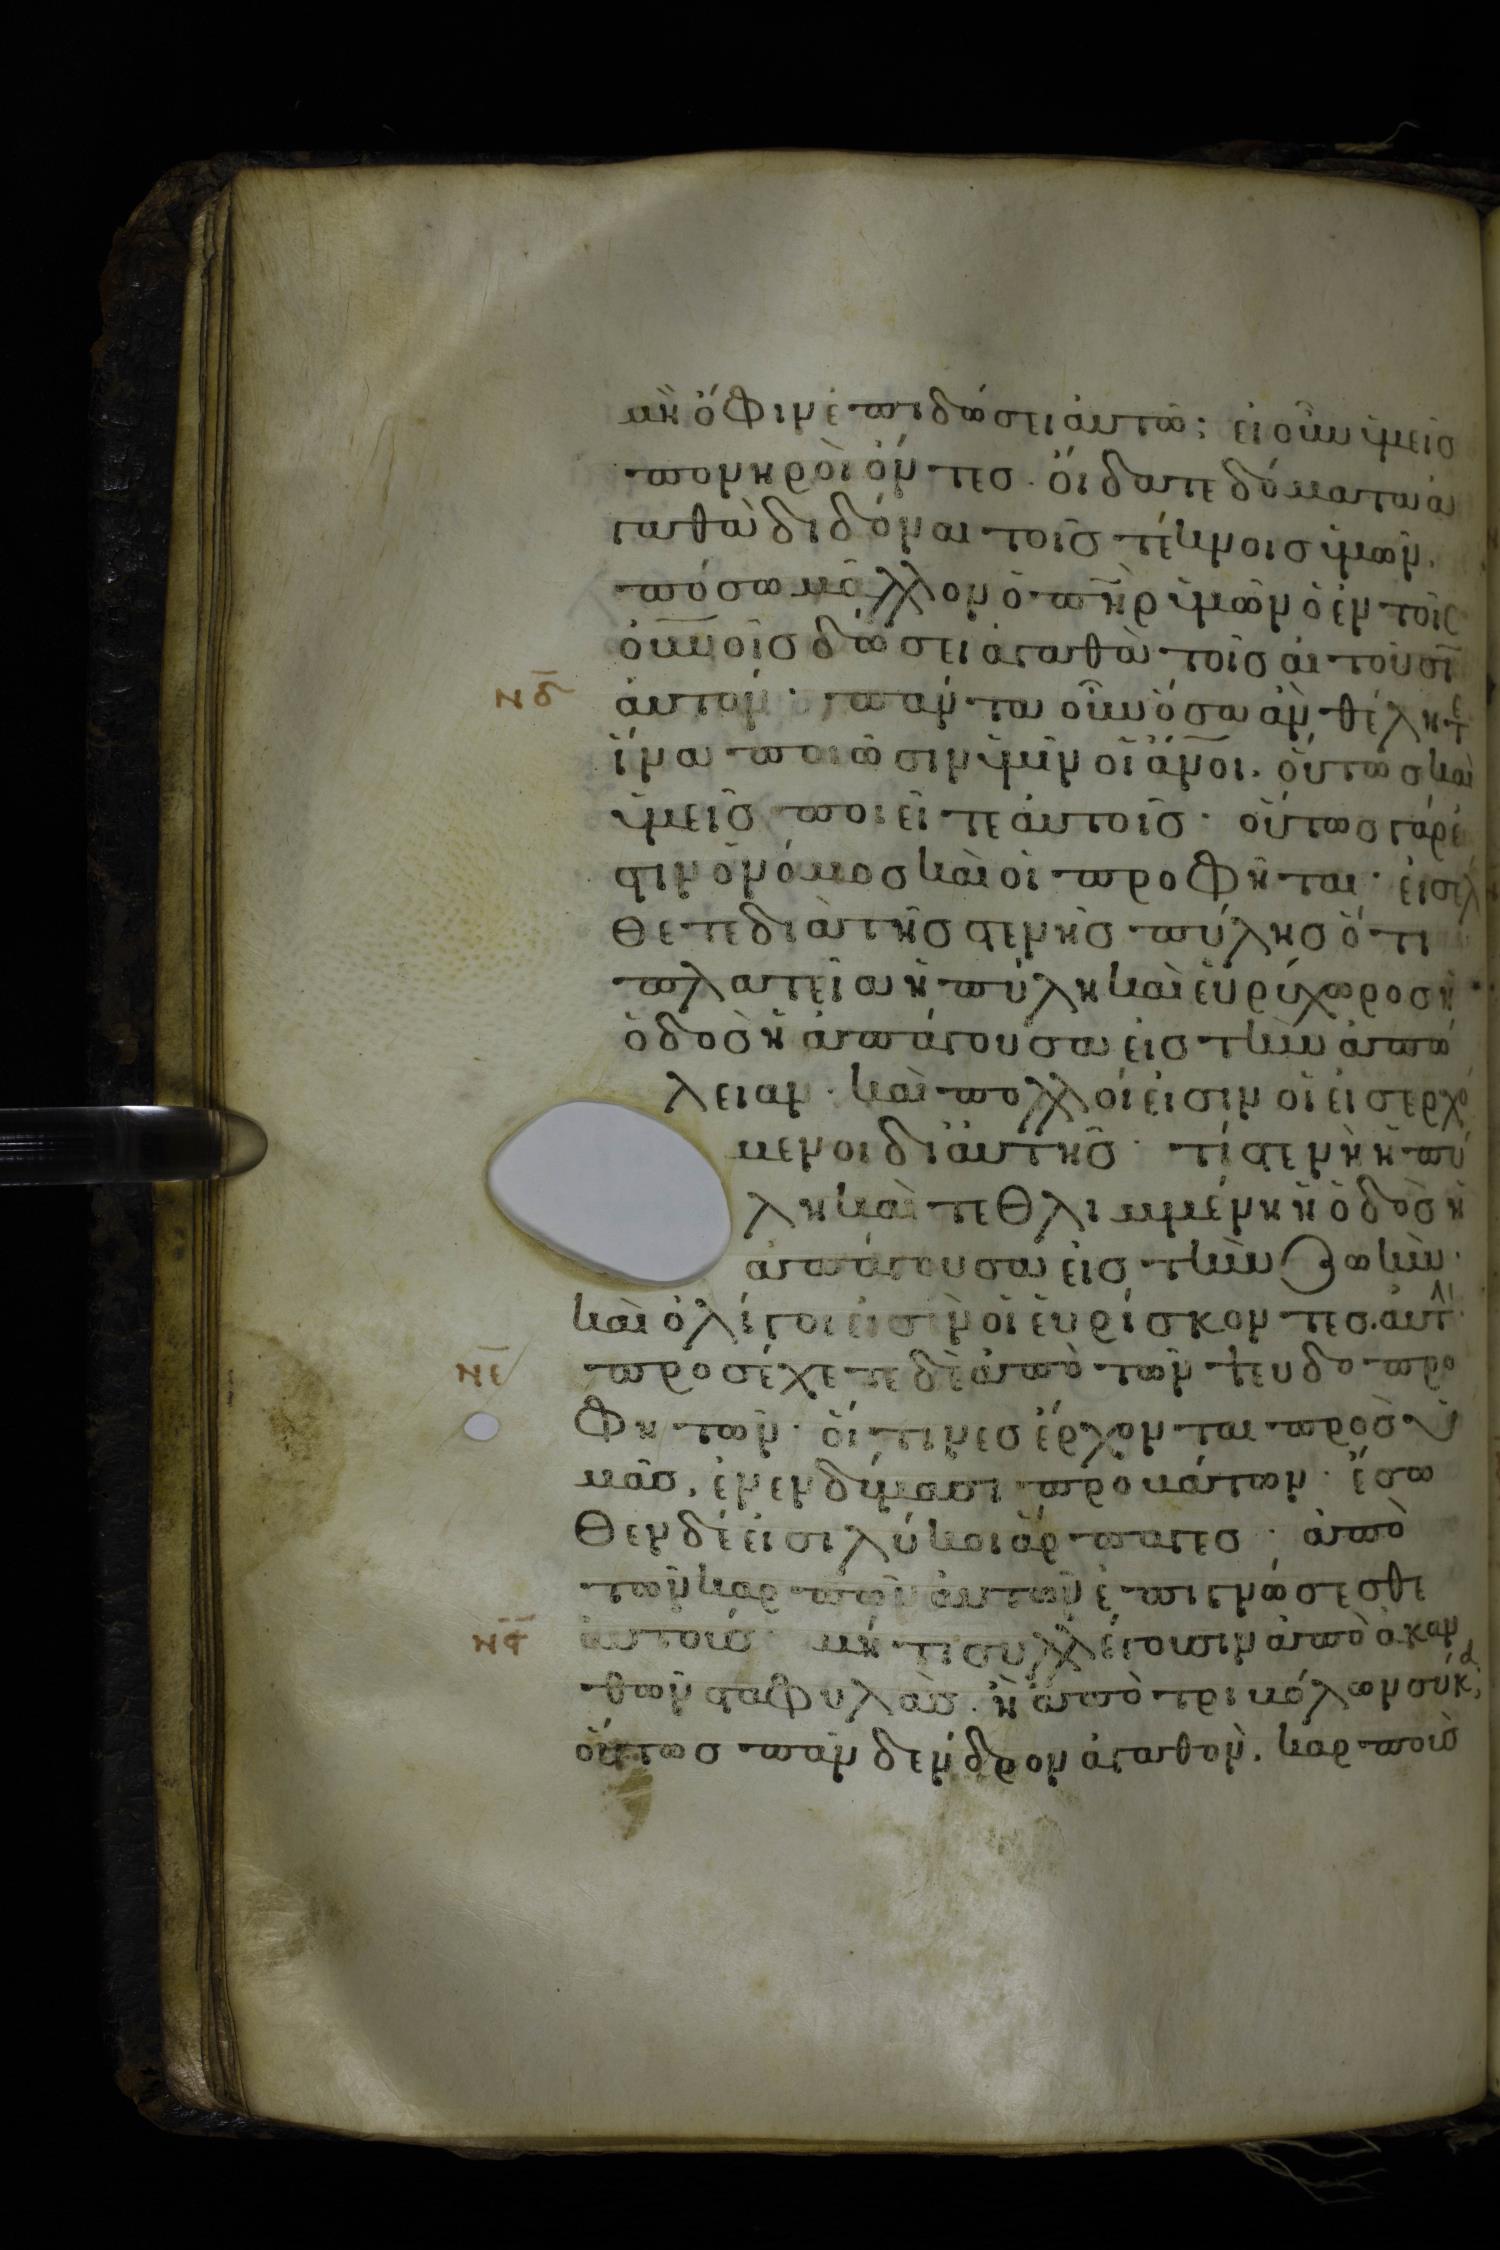 μὴ ὄφιν ἐπιδώσει ἀυτῶ; εἰ οὖν ὑμεῖσ
πονηροὶ ὄντεσ. ὄιδατε δόματα ἀ
γαθὰ διδόναι τοῖσ τέκνοισ ὑμῶν.
πόσω μᾶλλον ὁ π̅η̅ρ ὑμῶν ὁ ἐν τοῖς
ὀυ̅ν̅οῖσ δώσει ἀγαθὰ τοῖσ αἰτοῦσῑ
νδ̅ ἀυτόν. πάντα οὖν ὅσα ἀν θέλητε
ἵνα ποιῶσιν ὑμῖν οἱ ἄ̅ν̅οι. ὅυτωσ καὶ
ὑμεῖσ ποιεῖτε ἀυτοῖσ. οὕτωσ γάρ ἐ
στιν ὁ νόμοσ καὶ οἱ προφῆται. ἐισέλ
θετε διὰ τῆσ στενῆσ πύλησ ὅτι
πλατεῖα ἡ πύλη καὶ ἐυρύχωροσ ἡ
ὁδὸσ ἡ ἀπάγουσα εἰσ τὴν ἀπώ
λειαν. καὶ πολλοί εἰσιν οἱ εἰσερχό
μενοι δι ἀυτῆσ. τί στενὴ ἡ πύ
λη καὶ τεθλιμμένη ἡ ὁδὸσ ἡ
ἀπάγουσα εἰσ τὴν ζωὴν.
καὶ ὀλίγοι εἰσὶν οἱ ἑυρίσκοντεσ ἀυτή
νε̅ προσέχετε δὲ ἀπὸ τῶν ψευδοπρο
φητῶν. ὅιτινεσ ἔρχονται πρὸσ ὑ
μᾶσ. ἐν ἐνδύμασι προβάτων. ἔσω
θεν δέ εἰσι λύκοι ἅρπαγεσ. ἀπὸ
τῶν καρπῶν ἀυτῶν ἐπιγνώσεσθε
νϛ̅ ἀυτούσ. μή τι συλλέγουσιν ἀπὸ ἀκαν
θῶν σταφυλὰσ. ἢ ἀπὸ τριβόλων σύκα;
ὅυτωσ πᾶν δένδρον ἀγαθὸν. καρποὺσ